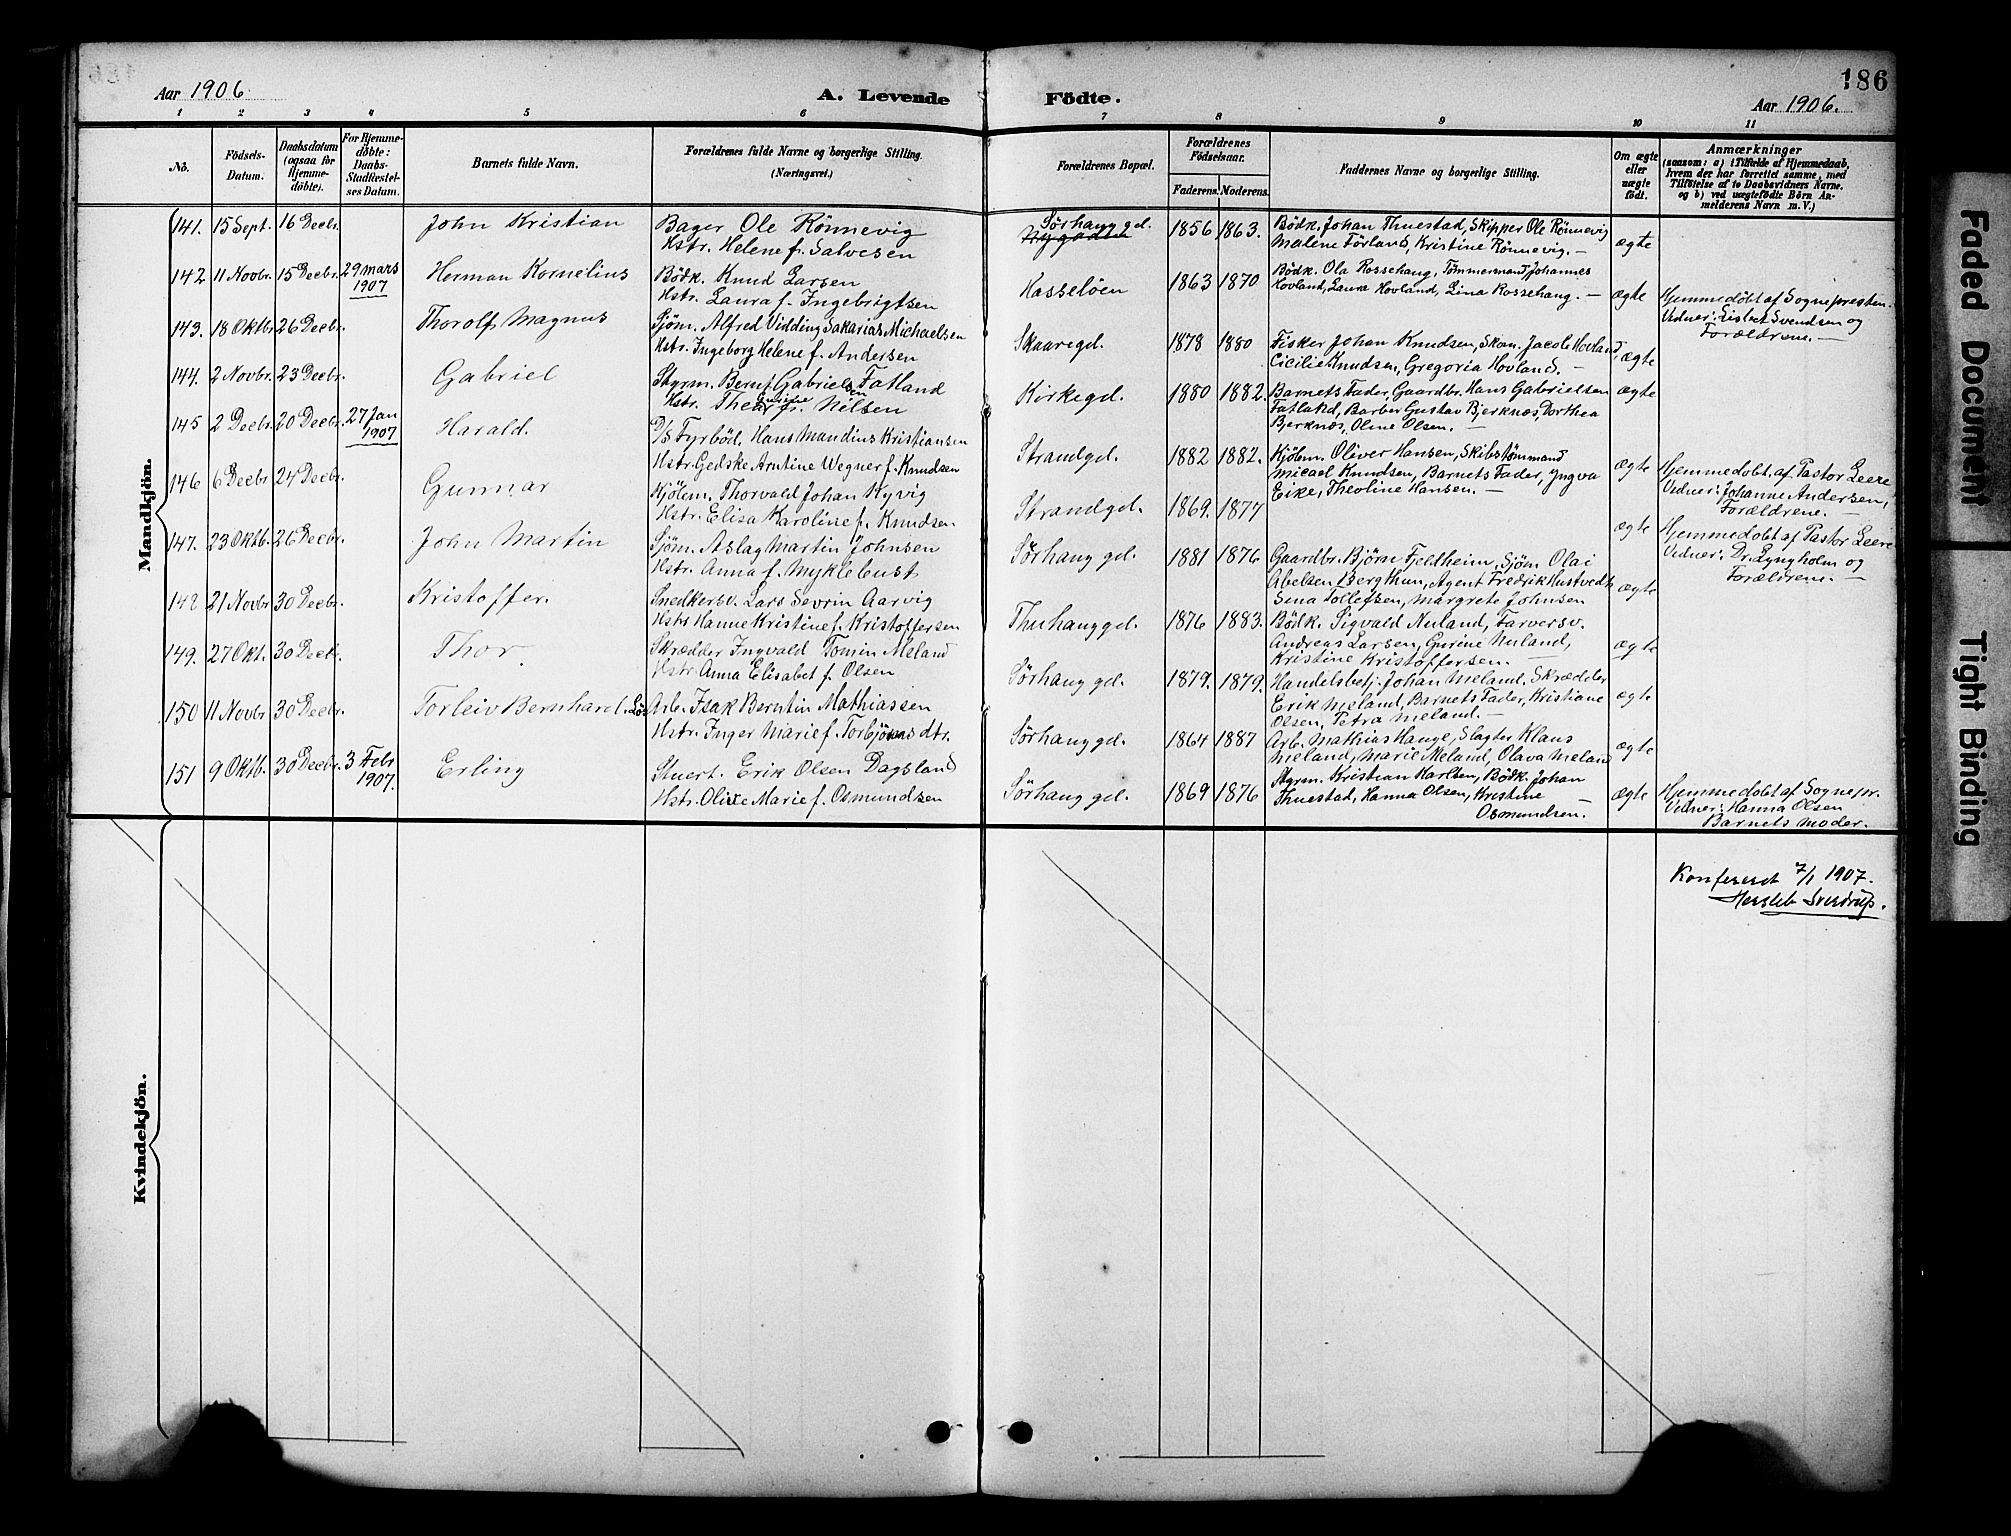 Aar 1906
A. Levende
Födte.
186
Aar 1906.
1 2 3 4 5 6 7 8 9 10 11
No.
Födsels-
Datum.
Daabsdatum
(ogsaa for
Hjemme-
döbte).
For Hjemme-
döbte:
Daabs-
Stadfæstel-
ses Datum.
Barnets fulde Navn.
Forældrenes fulde Navne og borgerlige Stilling.
(Næringsvei.)
Forældrenes Bopæl.
Forældrenes
Födselsaar.
Faderens. Moderens.
Faddernes Navne og borgerlige Stilling.
Om ægte
eller
uægte
födt.
Anmærkninger
(saasom: a) i Tilfælde af Hjemmedaab,
hvem der har forrettet samme, med
Tilföielse af to Daabsvidners Navne,
og b) ved uægtefödte Börn An-
melderens Navn m. V.)
Mandkjön.
141. 15 Sept. 16 Decbr. John Kristian
Bager Ole Rönnevig
Hstr. Helene f. Salvesen
Sørhauggd.
1856 1863.
Bödk. Johan Thuestad, Skipper Ole Rönnevig
Malene Förland, Kristine Rönnevig. —
ægte
142 11 Novbr. 15 Decbr. 29 mars
1907
Herman Kornelius
Bödk. Knud Larsen
Hstr. Laura f. Ingebrigtsen
Hasseløen
1863 1870
Bödk. Ola Rossehaug, Tömmermand Johannes
Hovland, Laura Hovland, Lina Rossehaug. —
ægte
Hjemmedøbt af Sognepresten.
Vidner: Lisbet Svendsen og
Forældrene. —
143. 18 Oktbr. 26 Decbr. Thorolf Magnus
Sjöm. Alfred Vidding Sakarias Michaelsen
Hstr. Ingeborg Helene f. Andersen
Skaaregd.
1878 1880
Fisker Johan Knudsen, Skom. Jacob Hovland
Cicilie Knudsen, Gregoria Hovland. —
ægte
144. 2 Novbr. 23 Decbr. Gabriel
Styrm. Bernt Gabrielsen Fatland
Hstr. Thea f. Nilsen
Kirkegd.
1880 1882.
Barnets Fader, Gaardbr. Hans Gabrielsen
Fatland, Barber Gustav Bjerknæs, Dorthea
Bjerknæs, Oline Olsen. —
ægte
145 2 Decbr. 20 Decbr. 27 Jan
1907
Harald.
D/S Fyrböd. Hans Mandius Kristiansen
Hstr. Gedske Arntine Wegner f. Knudsen
Strandgd.
1882 1882.
Kjölem. Oliver Hansen, Skibstømmermand
Micael Knudsen, Barnets Fader, Yngva
Eike, Theoline Hansen. —
ægte
Hjemmedøbt af Pastor Leere
Vidner: Johanne Andersen,
Forældrene. —
146 6 Decbr 24 Decbr. Gunnar
Kjölem. Thorvald Johan Kyvig
Hstr. Elisa Karoline f. Knudsen.
Strandgd.
1869. 1877
ægte
Hjemmedøbt af Pastor Leere
Vidner: Dr. Lyngholm og
Forældrene. —
147. 23 Oktb. 26 Decbr. John Martin
Sjöm. Aslag Martin Johnsen
Hstr. Anna f. Myklebust
Sørhauggd.
1881 1876
Gaardbr. Björn Fjeldheim, Sjöm Olai
Abelsen Bergthun, Agent Fredrik Hustvedt
Sina Tollefsen, Margrete Johnsen
ægte
148 21 Novbr 30 Decbr. Kristoffer.
Snedkersv. Lars Sevrin Aarvig
Hstr Hanne Kristine f. Kristoffersen
Thuhauggd.
1876 1883.
Bödk. Sigvald Nuland, Farversv.
Andreas Larsen, Gurine Nuland,
Kristine Kristoffersen. —
ægte
149. 27 Okt. 30 Decbr. Thor.
Skrædder Ingvald Tomin Meland
Hstr. Anna Elisabet f. Olsen
Sørhauggd.
1879. 1879.
Handelsbetj. Johan Meland, Skrædder
Erik Meland, Barnets Fader, Kristiane
Olsen, Petra Meland. —
ægte
150 11 Novbr 30 Decbr. Torleiv Bernhard.
Arb. Isak Berntin Mathiassen
Hstr. Inger Marie f. Torbjörnsdtr.
Sørhauggd.
1864 1887
Arb. Mathias Hauge, Slagter Klaus
Meland, Marie Meland, Olava Meland
ægte
151 9 Oktb. 30 Decbr. 3 Febr
1907.
Erling
Stuert. Erik Olsen Dagsland
Hstr. Olive Marie f. Osmundsen
Sørhauggd.
1869 1876
Styrm. Kristian Karlsen, Bödk. Johan
Thuestad, Hanna Olsen, Kristine —
Osmundsen.
ægte
Hjemmedøbt af Sognepr.
Vidner: Hanna Olsen
Barnets Moder.
Kvindekjön.
Konfereret 7/1 1907.
Hersleb Sverdrup.
Faded Document
Tight Binding